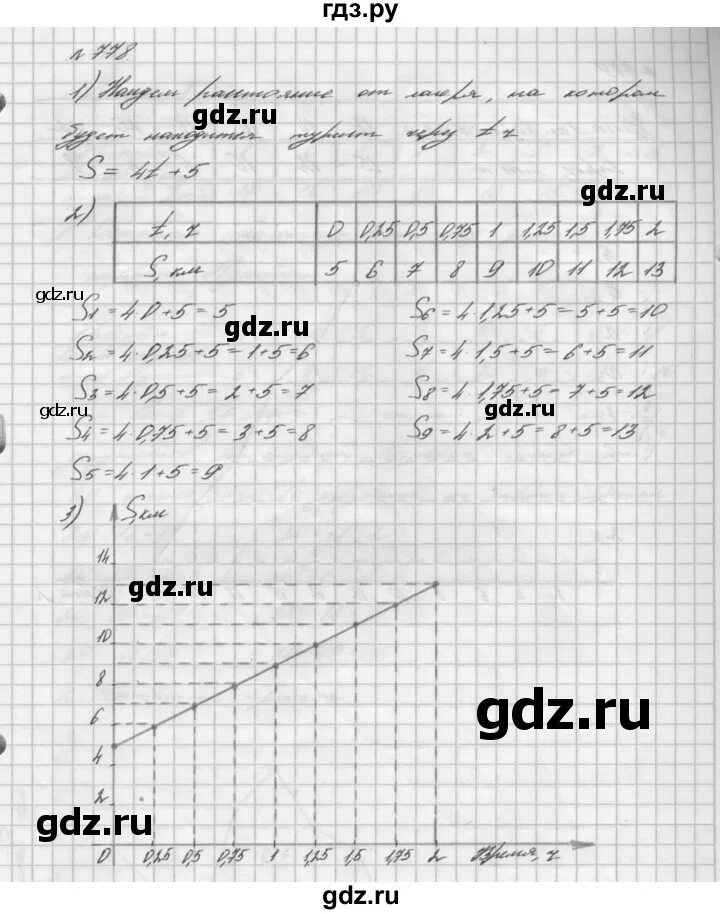 гдз.ру
№ 778.
1) Найдем расстояние от лагеря, на котором
gdz.ru
будет находится турист через t ч.
S = 4t + 5
gdz.ru
2)
t, ч 0 0,25 0,5 0,75 1 1,25 1,5 1,75 2
S, км 5 6 7 8 9 10 11 12 13
gdz.ru
S1 = 4·0+5 = 5
S6 = 4·1,25+5 = 5+5 = 10
gdz.ru
S2 = 4·0,25+5 = 1+5 = 6
S7 = 4·1,5+5 = 6+5 = 11
S3 = 4·0,5+5 = 2+5 = 7
S8 = 4·1,75+5 = 7+5 = 12
gdz.ru
gdz.ru
S4 = 4·0,75+5 = 3+5 = 8
S9 = 4·2+5 = 8+5 = 13
S5 = 4·1+5 = 9
3) S, км
14
gdz.ru
12
10
8
gdz.ru
6
4
2
gdz.ru
0 0,25 0,5 0,75 1 1,25 1,5 1,75 2 Время, ч
gdz.ru